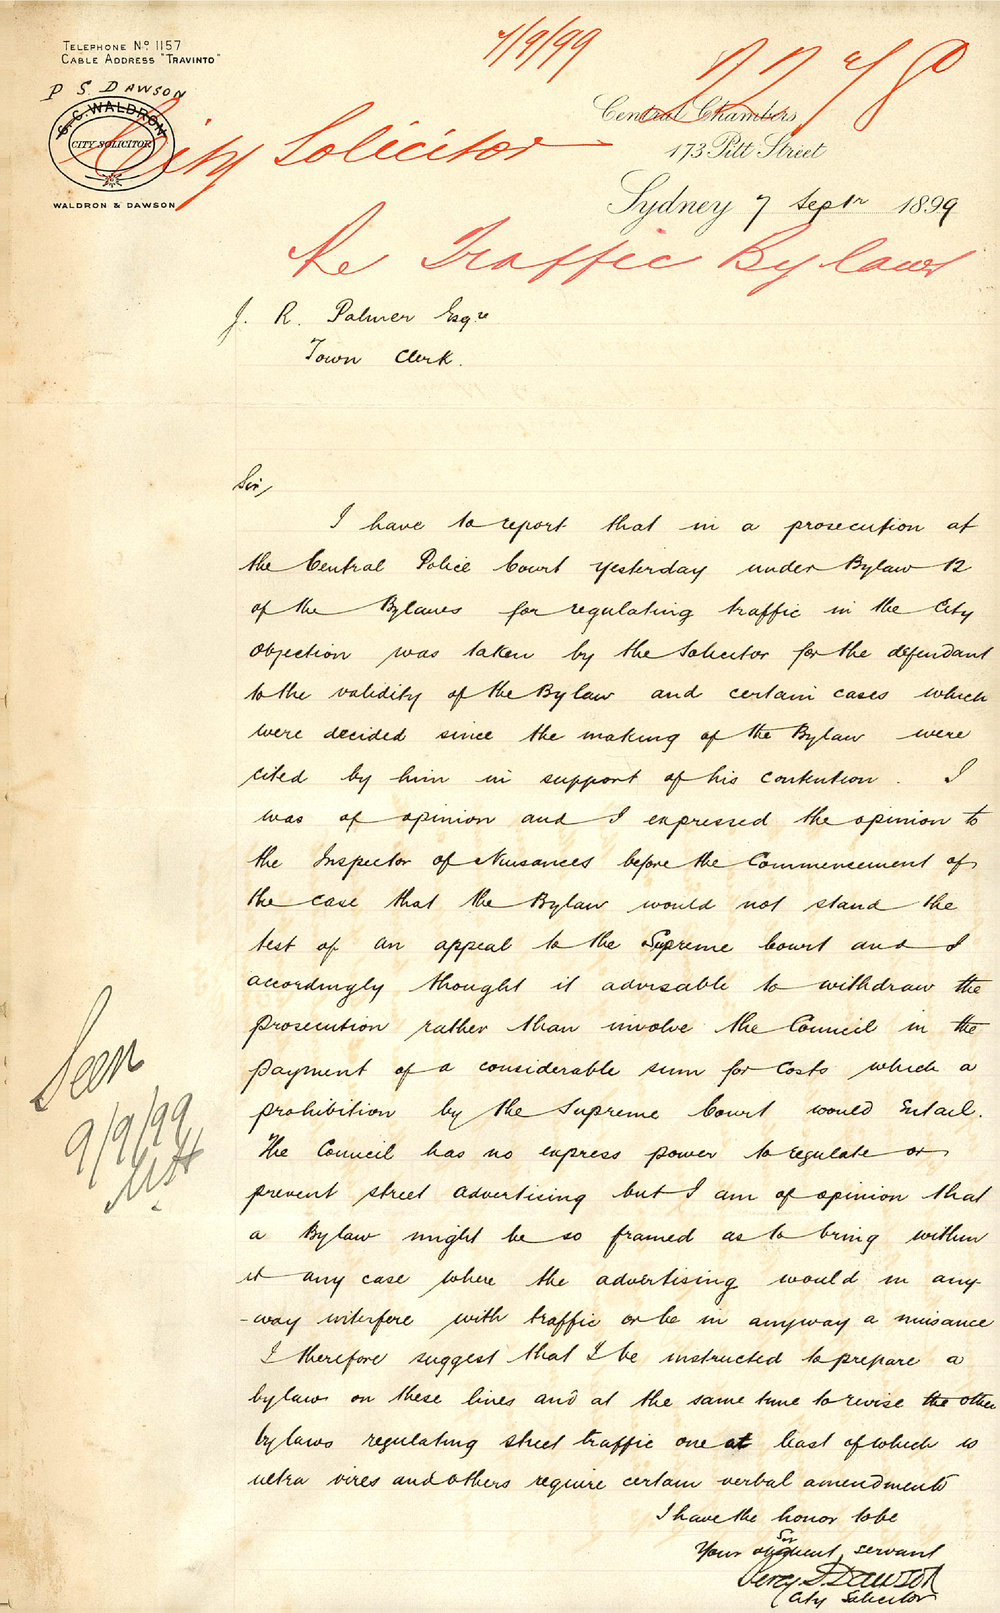 TELEPHONE No 1157
CABLE ADDRESS "TRAVINTO"
7/9/99
P S. DAWSON
G. C. WALDRON
CITY SOLICITOR
WALDRON & DAWSON
City Solicitor
Central Chambers
173 Pitt Street
Sydney 7 Septr 1899
Re Traffic Bylaws
J. R. Palmer Esqre
Town Clerk.
Sir,
I have to report that in a prosecution at
the Central Police Court yesterday under Bylaw 12
of the Bylaws for regulating traffic in the City
objection was taken by the Solicitor for the defendant
to the validity of the Bylaw and certain cases which
were decided since the making of the Bylaw were
cited by him in support of his contention. I
was of opinion and I expressed the opinion to
the Inspector of Nuisances before the Commencement of
the case that the Bylaw would not stand the
test of an appeal to the Supreme Court and I
accordingly thought it advisable to withdraw the
prosecution rather than involve the Council in the
payment of a considerable sum for Costs which a
prohibition by the Supreme Court would Entail.
The Council has no express power to regulate or
prevent street advertising but I am of opinion that
a Bylaw might be so framed as to bring within
it any case where the advertising would in any-
-way interfere with traffic or be in anyway a nuisance
I therefore suggest that I be instructed to prepare a
bylaw on these lines and at the same time to revise the other
bylaws regulating street traffic one at least of which is
ultra vires and others require certain verbal amendments
Seen
9/9/99
I have the honor to be
Sir
Your obedient servant
Percy S. Dawson
City Solicitor